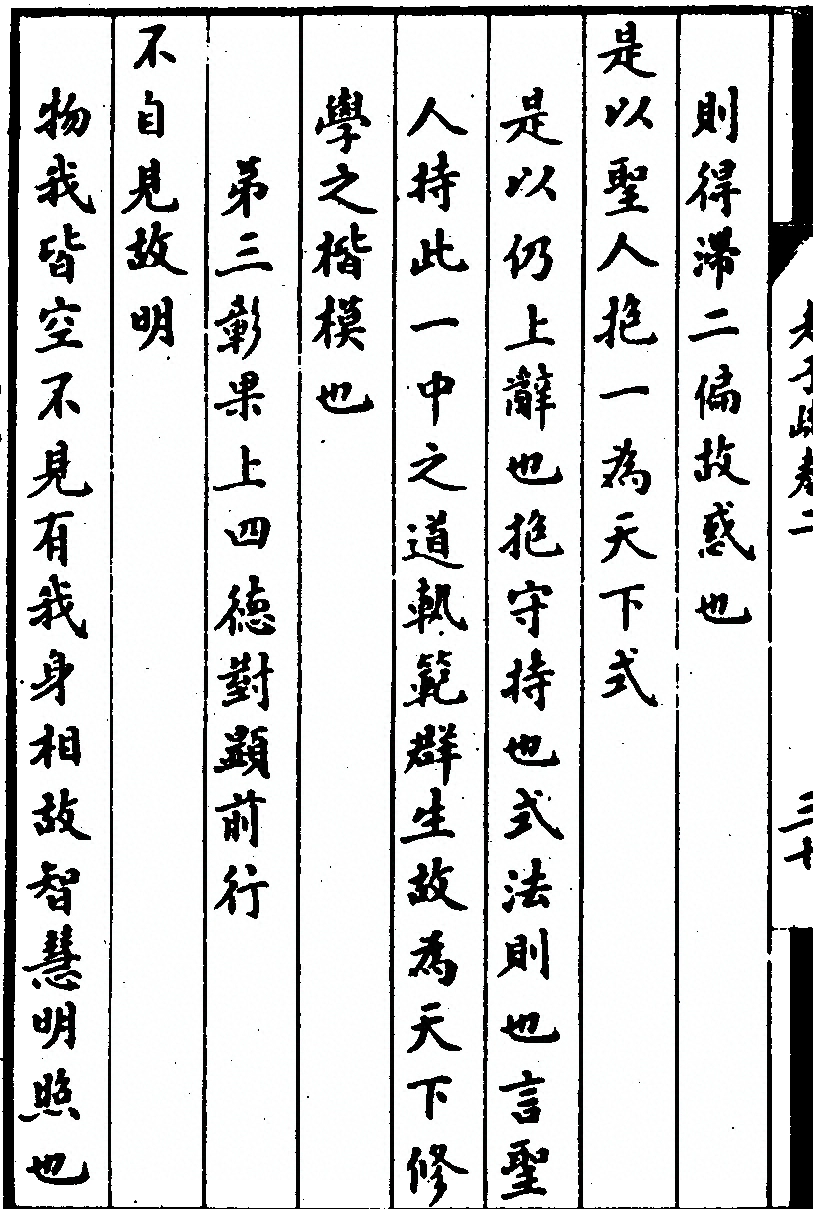 則得滯二偏故惑也
是以聖人抱一為天下式
是以仍上辭也抱守持也式法則也言聖
人持此一中之道軌範群生故為天下修
學之楷模也
第三彰果上四德對顯前行
不自見故明
物我皆空不見有我身相故智慧明照也